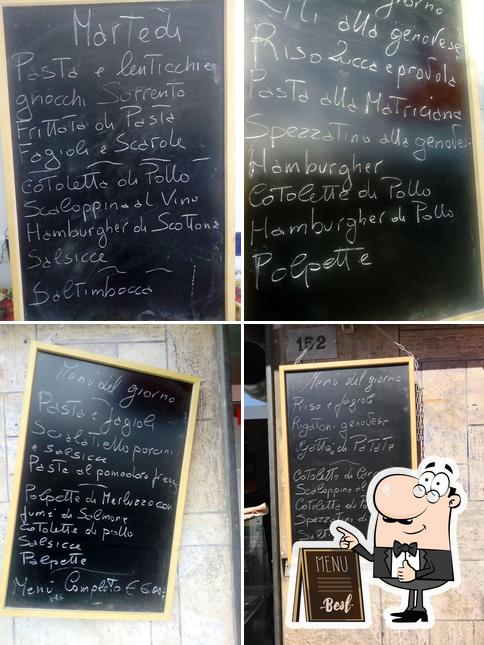 Martedì
Pasta e lenticchie
gnocchi Sorrento
Frittata di Pasta
Fagioli e Scarole
cotoletta di Pollo
Scaloppina al Vino
Hamburgher di Scottona
Salsicce
Saltimbocca
giorno
alla genovese
Riso Zucca e provola
Pasta alla Matriciana
Spezzatino alla genovese
Hamburgher
Cotolette di Pollo
Hamburgher di Pollo
Polpette
Menù del giorno
Pasta e fagioli
Scialatiello porcini
e salsicce
Pasta al pomodoro fresco
Polpette di Merluzzo con
fumè di Salmone
Cotolette di pollo
Salsicce
Polpette
Menù Completo € 6.00
152
Menù del giorno
Riso e fagioli
Rigatoni genovese
Gattò di Patate
Cotoletta di
Scaloppina al
Cotoletta di
Spezzatino
MENU
Best